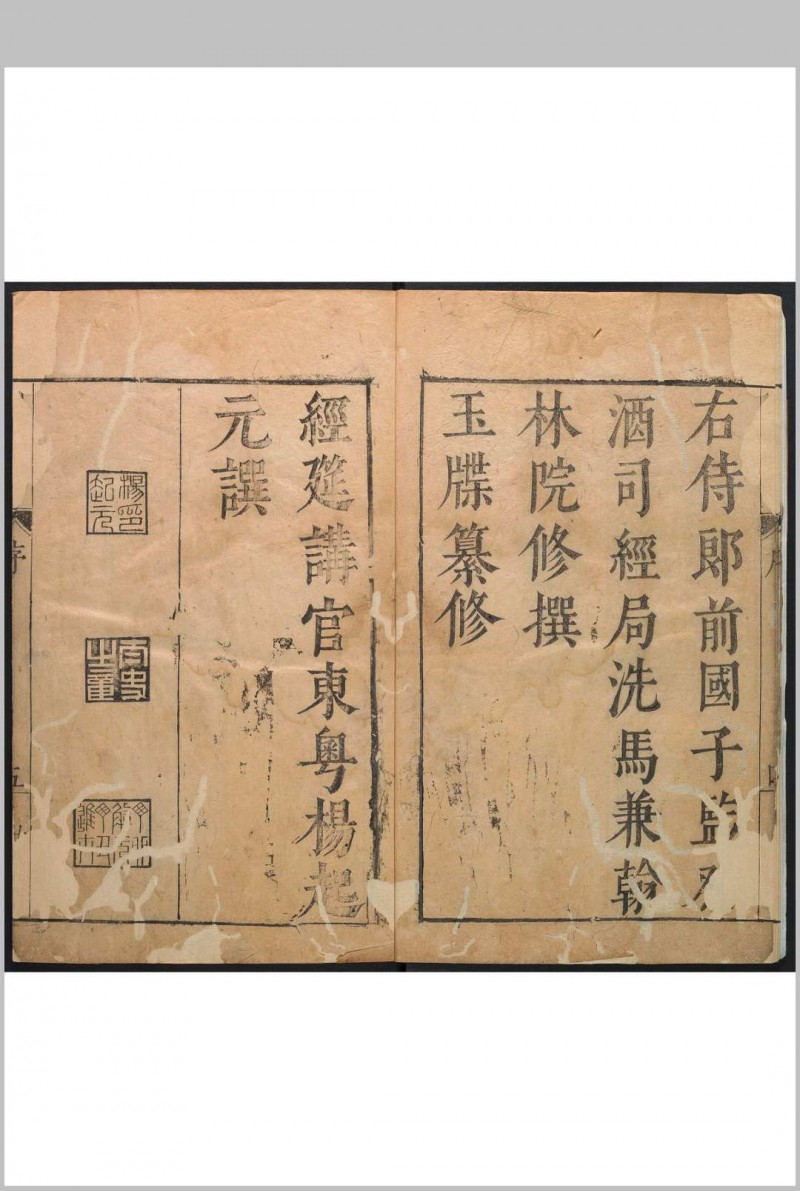 右侍郎前國子監祭
酒司經局洗馬兼翰
林院修撰
玉牒纂修
經筵講官東粵楊起
元譔
楊印起元
序
五